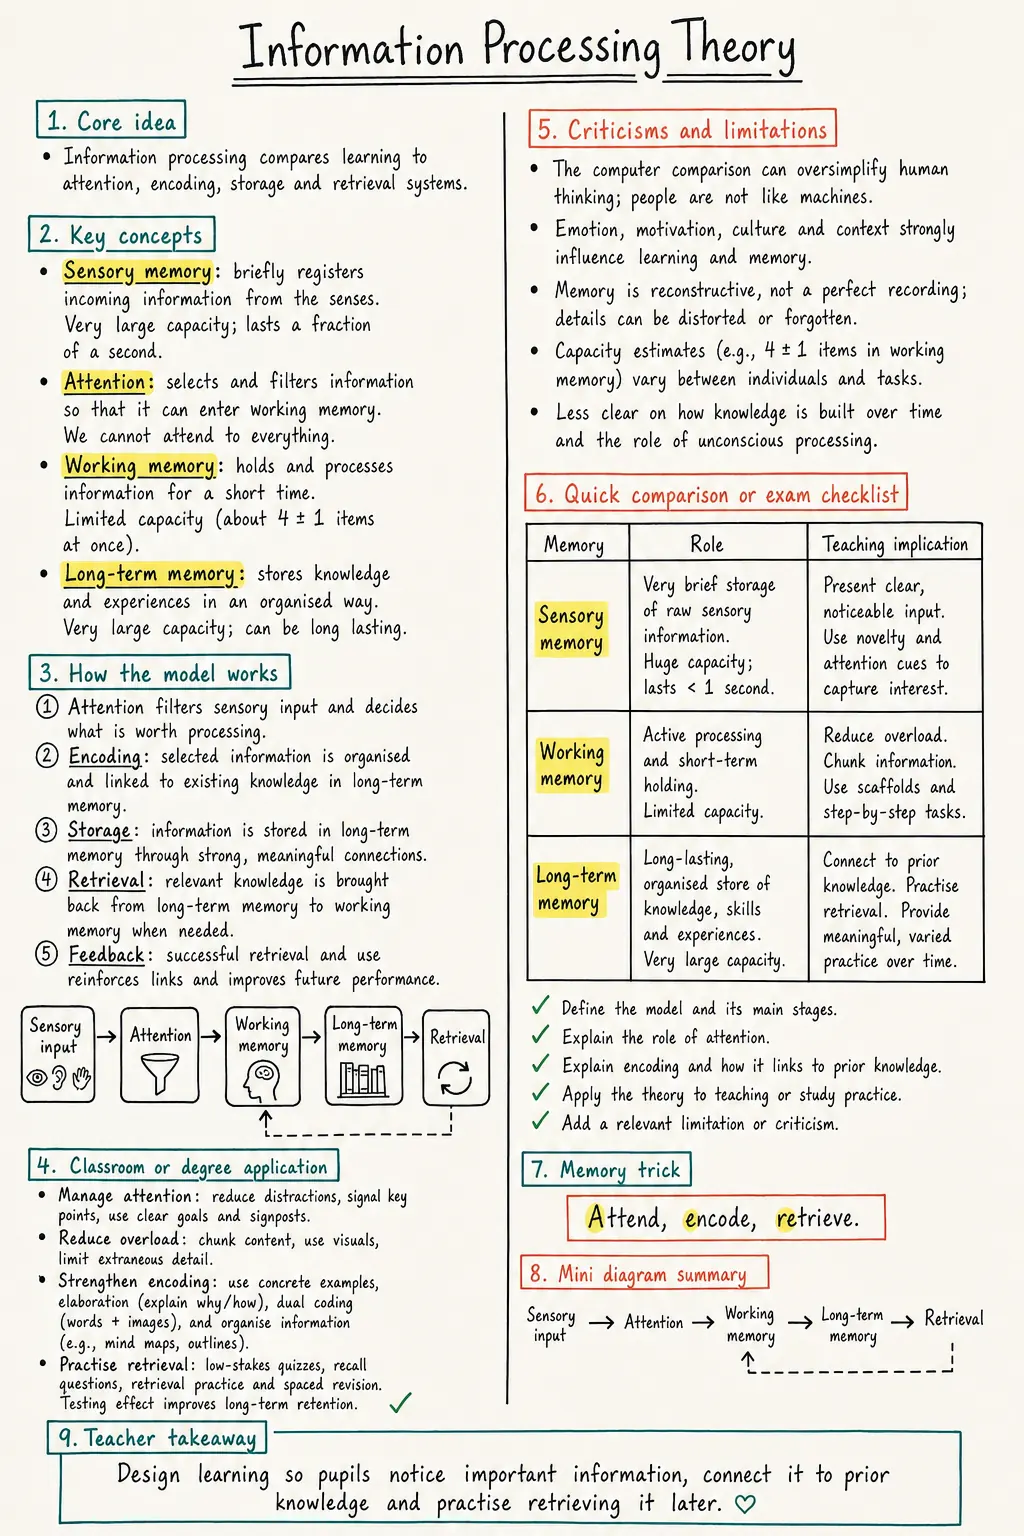 Information Processing Theory
1. Core idea
• Information processing compares learning to
attention, encoding, storage and retrieval systems.
2. Key concepts
• Sensory memory: briefly registers
incoming information from the senses.
Very large capacity; lasts a fraction
of a second.
• Attention: selects and filters information
so that it can enter working memory.
We cannot attend to everything.
• Working memory: holds and processes
information for a short time.
Limited capacity (about 4 ± 1 items
at once).
• Long-term memory: stores knowledge
and experiences in an organised way.
Very large capacity; can be long lasting.
3. How the model works
① Attention filters sensory input and decides
what is worth processing.
② Encoding: selected information is organised
and linked to existing knowledge in long-term
memory.
③ Storage: information is stored in long-term
memory through strong, meaningful connections.
④ Retrieval: relevant knowledge is brought
back from long-term memory to working
memory when needed.
⑤ Feedback: successful retrieval and use
reinforces links and improves future performance.
Sensory
input
Attention
Working
memory
Long-term
memory
Retrieval
4. Classroom or degree application
• Manage attention: reduce distractions, signal key
points, use clear goals and signposts.
• Reduce overload: chunk content, use visuals,
limit extraneous detail.
• Strengthen encoding: use concrete examples,
elaboration (explain why/how), dual coding
(words + images), and organise information
(e.g., mind maps, outlines).
• Practise retrieval: low-stakes quizzes, recall
questions, retrieval practice and spaced revision.
Testing effect improves long-term retention. ✓
5. Criticisms and limitations
• The computer comparison can oversimplify human
thinking; people are not like machines.
• Emotion, motivation, culture and context strongly
influence learning and memory.
• Memory is reconstructive, not a perfect recording;
details can be distorted or forgotten.
• Capacity estimates (e.g., 4 ± 1 items in working
memory) vary between individuals and tasks.
• Less clear on how knowledge is built over time
and the role of unconscious processing.
6. Quick comparison or exam checklist
Memory Role Teaching implication
Sensory
memory
Very brief storage
of raw sensory
information.
Huge capacity;
lasts < 1 second.
Present clear,
noticeable input.
Use novelty and
attention cues to
capture interest.
Working
memory
Active processing
and short-term
holding.
Limited capacity.
Reduce overload.
Chunk information.
Use scaffolds and
step-by-step tasks.
Long-term
memory
Long-lasting,
organised store of
knowledge, skills
and experiences.
Very large capacity.
Connect to prior
knowledge. Practise
retrieval. Provide
meaningful, varied
practice over time.
✓ Define the model and its main stages.
✓ Explain the role of attention.
✓ Explain encoding and how it links to prior knowledge.
✓ Apply the theory to teaching or study practice.
✓ Add a relevant limitation or criticism.
7. Memory trick
Attend, encode, retrieve.
8. Mini diagram summary
Sensory
input
→ Attention →
Working
memory
→
Long-term
memory
→ Retrieval
9. Teacher takeaway
Design learning so pupils notice important information, connect it to prior
knowledge and practise retrieving it later. ♡